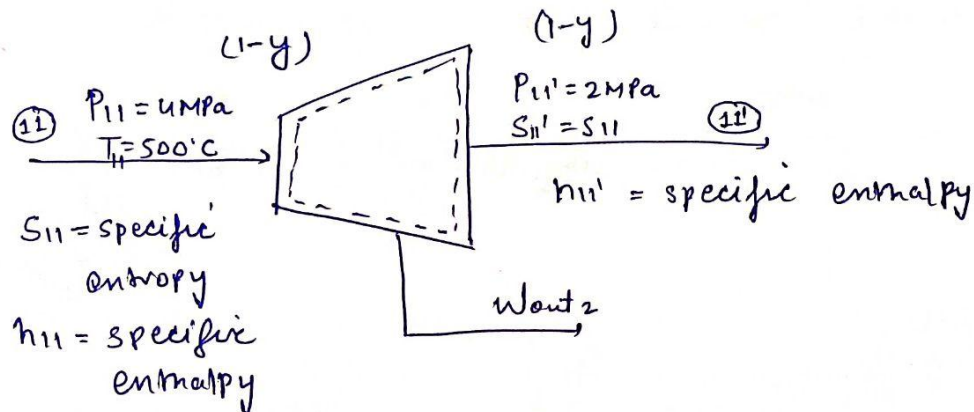 (1-y)
(1-y)
11
P11 = 4MPa
T11 = 500°C
P11' = 2MPa
S11' = S11
11'
h11' = specific enthalpy
S11 = specific
entropy
h11 = specific
enthalpy
Wout2